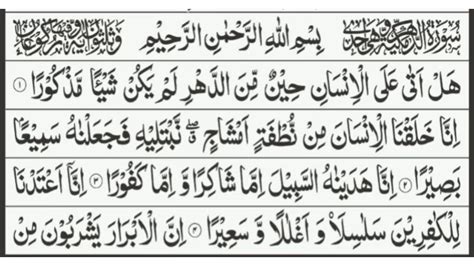 سُوْرَةُ الدَّهْرِ بِسْمِ اللهِ الرَّحْمٰنِ الرَّحِيْمِ
هَلْ اَتٰى عَلَى الْاِنْسَانِ حِيْنٌ مِّنَ الدَّهْرِ لَمْ يَكُنْ شَيْـًٔا مَّذْكُوْرًا ۝۱
اِنَّا خَلَقْنَا الْاِنْسَانَ مِنْ نُّطْفَةٍ اَمْشَاجٍ ۖۗ نَّبْتَلِيْهِ فَجَعَلْنٰهُ سَمِيْعًۢا
بَصِيْرًا ۝۲ اِنَّا هَدَيْنٰهُ السَّبِيْلَ اِمَّا شَاكِرًا وَّ اِمَّا كَفُوْرًا ۝۳ اِنَّاۤ اَعْتَدْنَا
لِلْكٰفِرِيْنَ سَلٰسِلَا۟ وَ اَغْلٰلًا وَّ سَعِيْرًا ۝۴ اِنَّ الْاَبْرَارَ يَشْرَبُوْنَ مِنْ